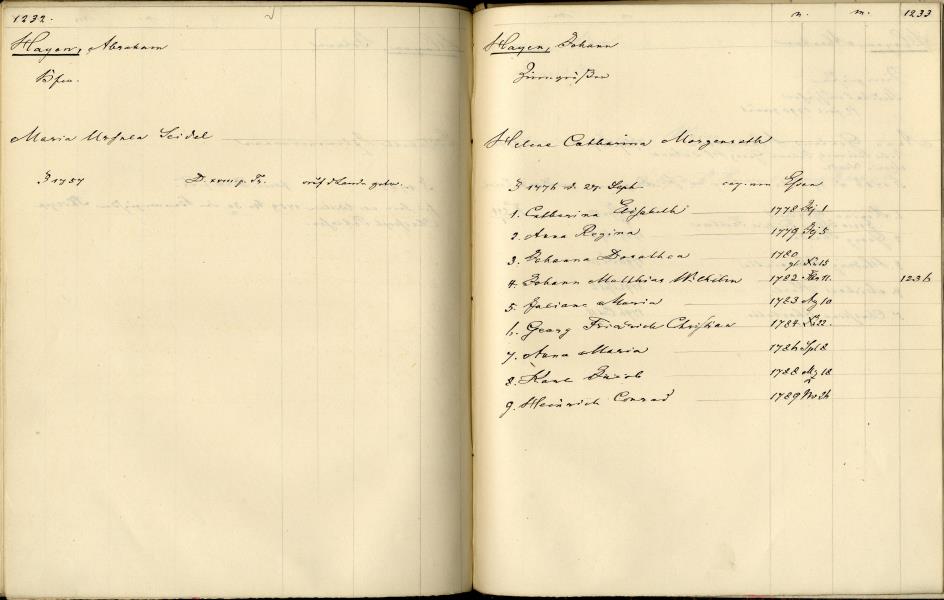 1232.
Hagen, Abraham
Maria Ursula Seidel
1757 D. XVIII. p. Tr. auf d Lande getr.
n. m. 1233
Hagen, Johann
Zinngießer
Helene Catharina Morgenroth
1776 d. 24. Sept. cop. von
1. Catharina Elisabeth 1778 Jj 1
2. Anna Regina 1779 Jj 5
3. Johanna Dorothea 1780
4. Johann Matthias Wilhelm 1782 Fbr 11. 1236
5. Juliane Maria 1783 Ag 10
6. Georg Friedrich Christian 1784 Xb 22.
7. Anna Maria 1786 Spt 8
8. Karl Jacob 1788 Mz 18
9. Heinrich Conrad 1789 Nov 26